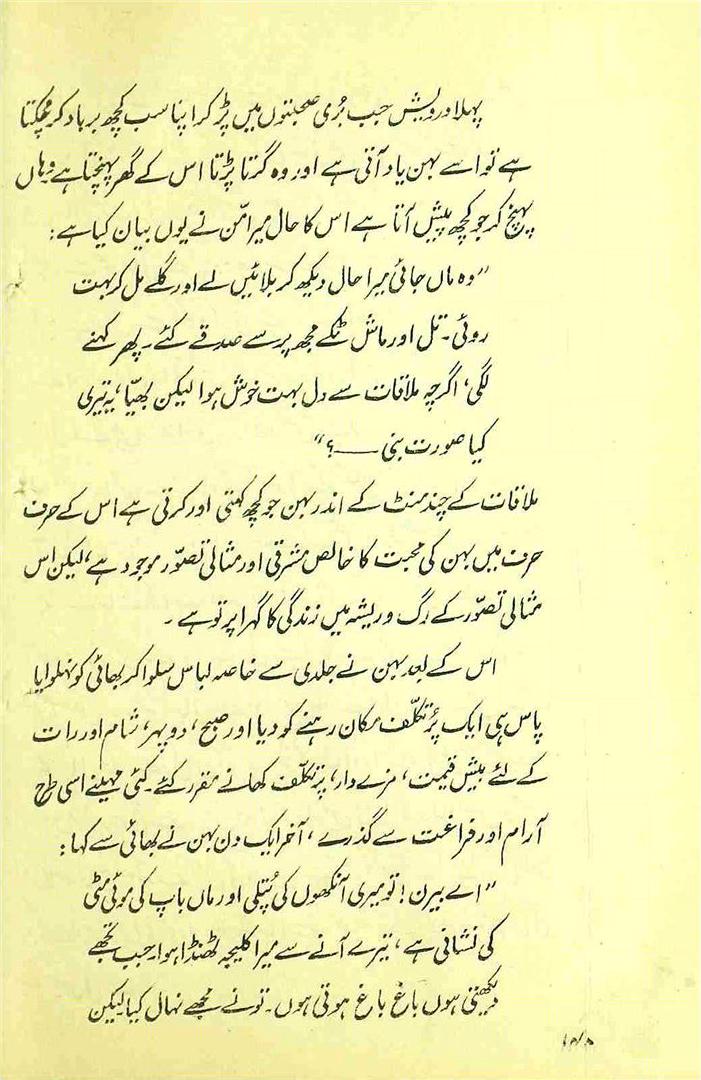 پہلا درویش جب بُری صحبتوں میں پڑ کر اپنا سب کچھ برباد کر چکتا
ہے تو اسے بہن یاد آتی ہے اور وہ گرتا پڑتا اس کے گھر پہنچتا ہے وہاں
پہنچ کر جو کچھ پیش آتا ہے اس کا حال میر امّن نے یوں بیان کیا ہے :
”وہ ماں جائی میرا حال دیکھ کر بلائیں لے اور گلے مل کر بہت
روئی۔ تل اور ماش ٹکے مجھ پر سے صدقے کئے۔ پھر کہنے
لگی، اگرچہ ملاقات سے دل بہت خوش ہوا لیکن بھیّا، یہ تیری
کیا صورت بنی ——؟“
ملاقات کے چند منٹ کے اندر بہن جو کچھ کہتی اور کرتی ہے اس کے حرف
حرف میں بہن کی محبت کا خالص مشرقی اور مثالی تصوّر موجود ہے، لیکن اس
مثالی تصوّر کے رگ و ریشہ میں زندگی کا گہرا پرتو ہے ۔
اس کے بعد بہن نے جلدی سے خاصہ لباس سلوا کر بھائی کو نہلوایا
پاس ہی ایک پُر تکلّف مکان رہنے کو دیا اور صبح، دوپہر، شام اور رات
کے لئے بیش قیمت، مزے دار، پُر تکلّف کھانے مقرر کئے۔ کئی مہینے اسی طرح
آرام اور فراغت سے گذرے، آخر ایک دن بہن نے بھائی سے کہا :
”اے بیرن! تو میری آنکھوں کی پُتلی اور ماں باپ کی موئی مٹی
کی نشانی ہے، تیرے آنے سے میرا کلیجہ ٹھنڈا ہوا۔ جب تجھے
دیکھتی ہوں باغ باغ ہوتی ہوں۔ تو نے مجھے نہال کیا۔ لیکن